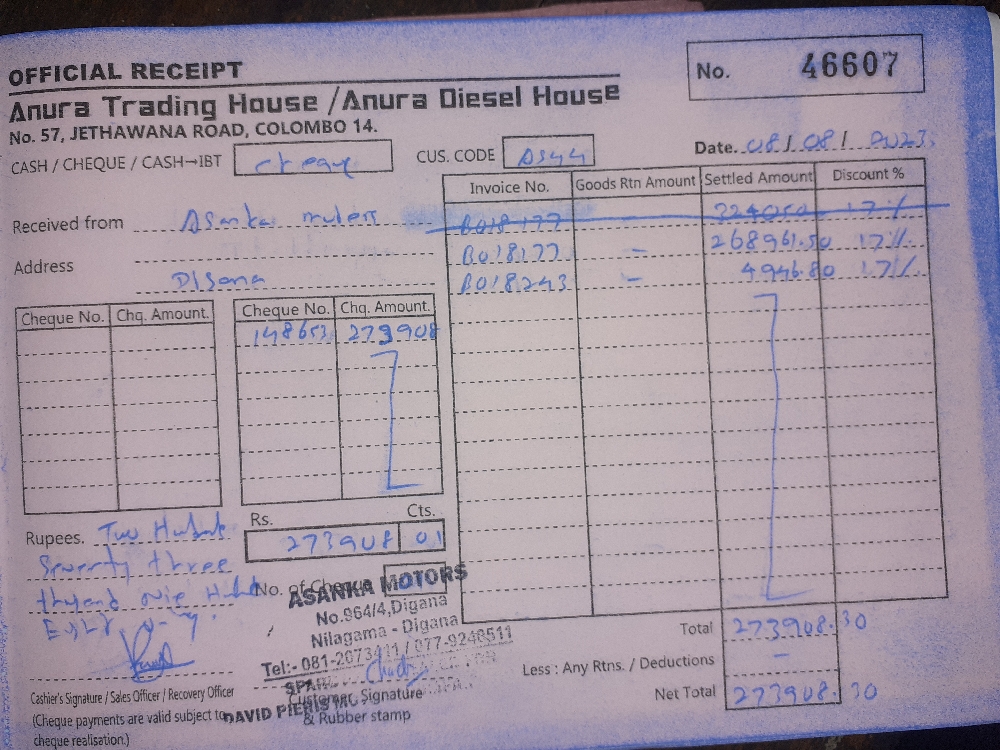 OFFICIAL RECEIPT
No. 46607
Anura Trading House / Anura Diesel House
No. 57, JETHAWANA ROAD, COLOMBO 14.
CASH / CHEQUE / CASH→IBT cheque CUS. CODE AS44 Date. 08/08/2023
Invoice No. Goods Rtn Amount Settled Amount Discount %
Received from Asanka
B018177 17%
B018177 – 268961.50 17%
Address
B018243 – 4946.80 17%
Cheque No. Chq. Amount. Cheque No. Chq. Amount.
148653 273908
Rs. Cts.
Rupees. Two
273908 01
Seventy three
No. of Cheque
ASANKA MOTORS
No.964/4,Digana
Nilagama - Digana
Tel:- 081-2073411 / 077-9248511
Total 273908.30
Less : Any Rtns. / Deductions –
Net Total 273908.30
Cashier's Signature / Sales Officer / Recovery Officer
Customer Signature
(Cheque payments are valid subject to
DAVID PIERIS
& Rubber stamp
cheque realisation.)